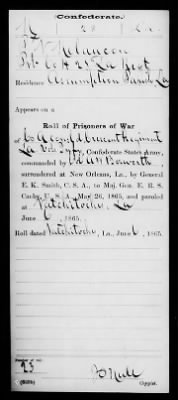 Confederate.
M 28 La.
P. Melancon
Pvt Co H 28 La Regt
Residence Assumption Parish La
Appears on a
Roll of Prisoners of War
of Co Crescent Regiment
La Vols Inf, Confederate States Army,
commanded by Col A W Bosworth,
surrendered at New Orleans, La., by General
E. K. Smith, C. S. A., to Maj. Gen. E. R. S.
Canby, U. S. A., May 26, 1865, and paroled
at Natchitoches, La
June 6, 1865.
Roll dated Natchitoches, La June 6, 1865.
Number of roll:
23
Copyist.